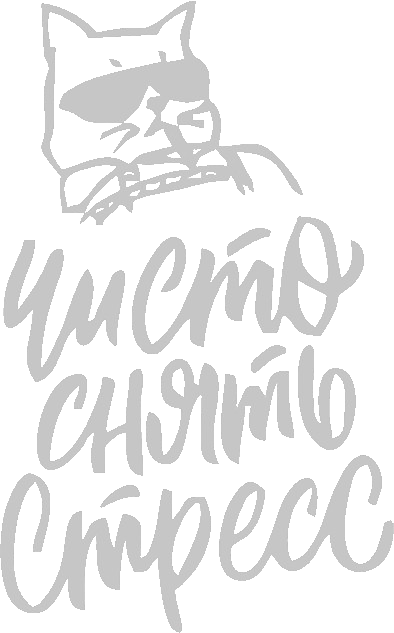 чисто
снять
стресс